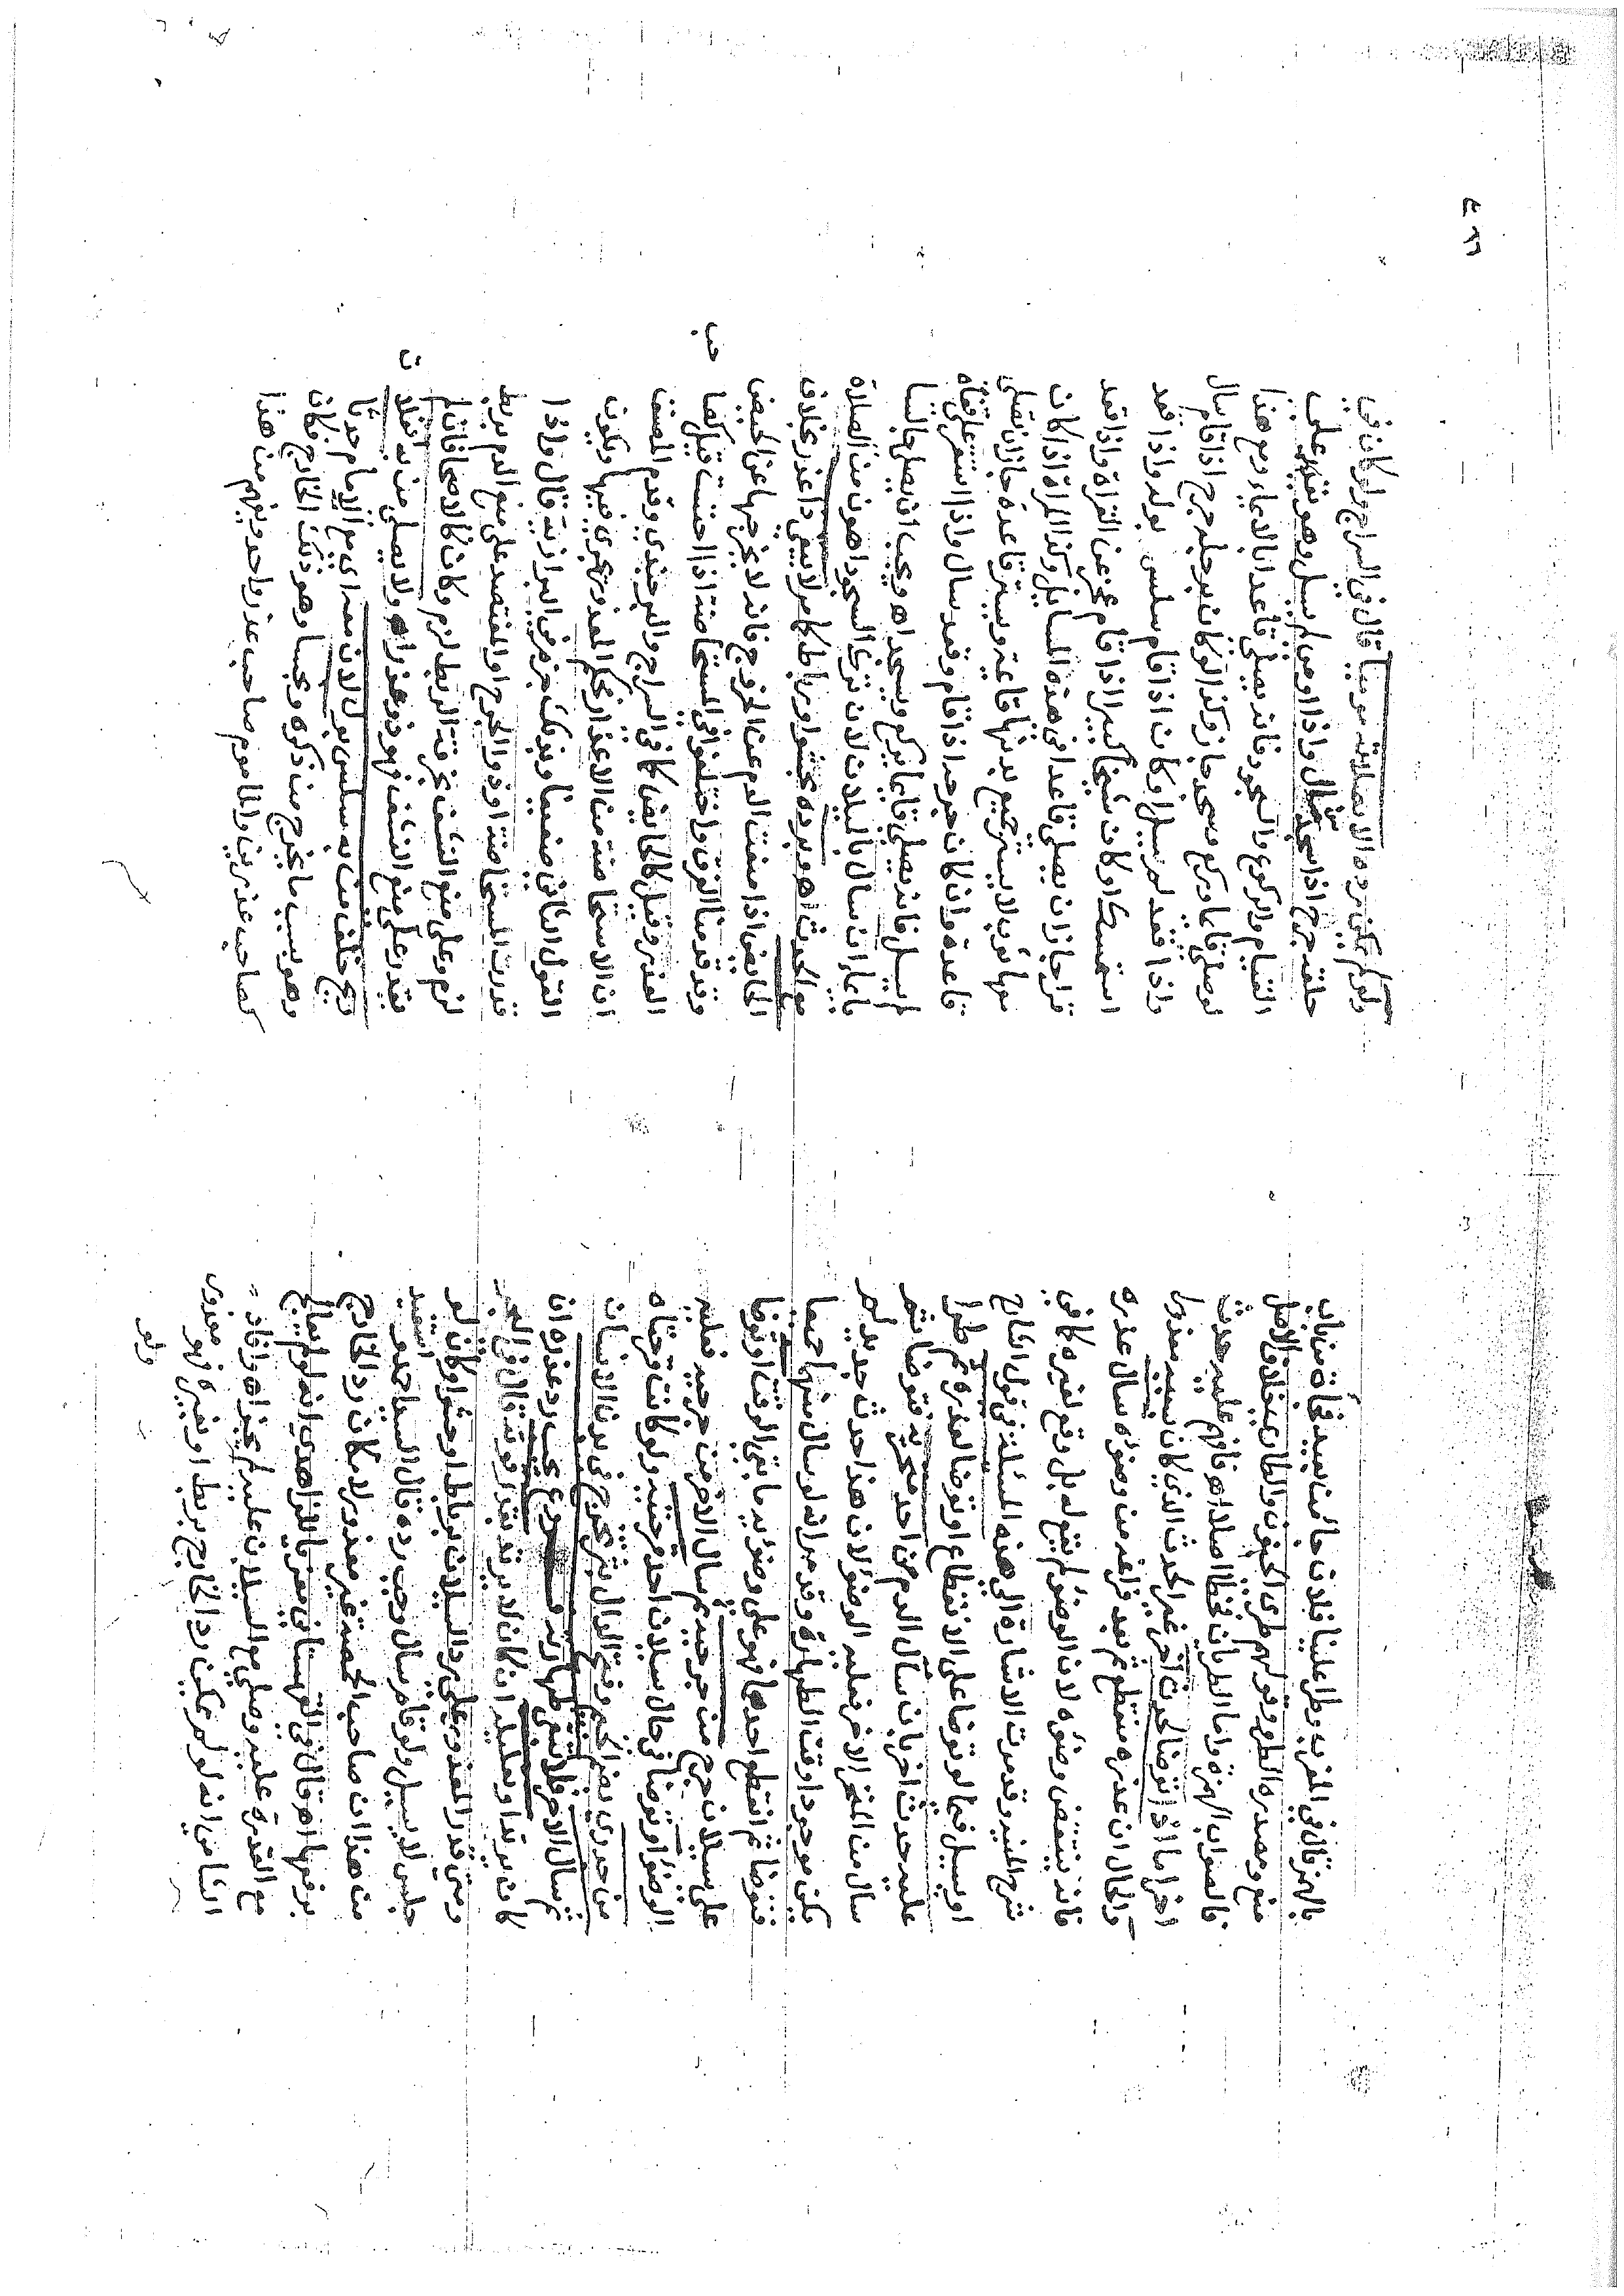 بالهمز قال في المغرب وطرا علينا فلان جائنا بعيد فجأة من باب
منع ومصدره الطرو وقولهم طرى الجنون والطاري خلاف الاصلي
فالصواب الهمزة واما الطريان فخطا اصلا اه فافهم عليه حدث
اخر اما اذا توضا لحدث اخر غير الحدث الذي كان بسببه معذورا
والحال ان عذره منقطع ثم بعد فراغه من وضوئه سال عذره
فانه ينتقض وضوئه لان الوضوء لم يقع له بل وقع لغيره كما في
شرح المنية وقد مرت الاشارة الى هذه المسئلة في قول الشارح
او يسيل فيما لو توضا على الانقطاع او توضا لعذره ثم طرا
عليه حدث اخر بان سال الدم من احد منخريه فتوضا ثم
سال من المنخر الاخر فعليه الوضوء لان هذا حدث جديد لم
يكن موجودا وقت الطهارة وقد مر انه لو سال منهما جميعا
فتوضا ثم انقطع احدهما فهو على وضوئه ما بقي الوقت او توضا
على سيلان جرح من جرحيه ثم سال الاخر من جرحيه فعليه
الوضوء او توضا في حال سيلان احد قرحتيه ولو كانت قرحتاه
من جدري بضم الجيم وفتح الدال بثر تخرج في بدن الانسان
ثم سال الاخر فلا تبقى طهارته يجب رد عذره ان
كان يرتد او تقليله ان كان لا يرتد بقدر قدرته قال في البحر
ومتى قدر المعذور على رد السيلان برباط او حشو او كان لو
جلس لا يسيل ولو قام سال وجب رده قال السيد احمد ويستفيد
من هذا ان صاحب الحمصة غير معذور لامكان رد الخارج
برفعها اه قال في القهستاني معزيا للزاهدي انه لو لم يعالج
مع القدرة عليه وصلى مع السيلان عليه لم يجز اه وافاد
الشامي انه لو لم يمكن رد الخارج بربط او بغيره فهو معذور
ولو
٤٦٦
ولو لم يكن رده الا بصلاته موميا قال في السراج ولو كان في
حلقه جرح اذا سجد سال واذا اومى لم يسل وهو يقدر على
القيام والركوع والسجود فانه يصلي قاعدا بالايماء ومع هذا
لو صلى قائما وركع وسجد جاز وكذا لو كان برجله جرح اذا قام سال
واذا قعد لم يسل او كان اذا قام سلس بوله واذا قعد
استمسك او كان شيخا كبيرا اذا قام عجز عن القراة واذا قعد
قرا جاز ان يصلي قاعدا في هذه المسايل وكذا المراة اذا كان
معها ثوب لا يستر جميع بدنها قائمة ويستر قاعدة جاز ان تصلي
قاعدة وان كان جرحه اذا قام وقعد سال واذا استلقى على قفاه
لم يسل فانه يصلي قائما يركع ويسجد اه ويجب ان يصلي جالسا
بايماء ان سال بالميلان لان ترك السجود اهون من الصلاة
مع الحدث اه وبرده بحشو او برباط كما مر لا يبقى ذا عذر بخلاف
الحائض اذا منعت الدم عن الخروج فانه لا يخرجها عن الحيض
وقد قدمنا الفرق واختلفوا في المستحاضة اذا احتشت قيل كصاحب
العذر وقيل كالحائض كما في السراج والبرجندي وقدم المصنف
ان الاستحاضة من الاعذار ويجري حكم المعذور فيها ويكون
القول الثاني ضعيفا وبذلك جزم في البزازية قال واذا
قدرت المستحاضة او ذو الجرح او المفتصد على منع الدم بربط
لزم وعلى منع النشف بخرقة الربط لزم وكان كالاصحا فان لم
يقدر على منع النشف فهو ذو عذر اه ولا يصلي من به انفلات
ريح خلف من به سلس بول لان معه اي مع الامام حدثا
وهو بسبب ما يخرج من ذكره ونجسا وهو ذلك الخارج فكان
كصاحب عذرين والماموم صاحب عذر واحد ويفهم من هذا